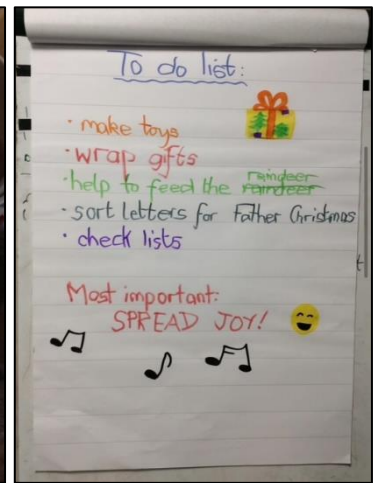 To do list:
· make toys
· wrap gifts
· help to feed the reindeer
· sort letters for Father Christmas
· check lists
Most important:
SPREAD JOY!